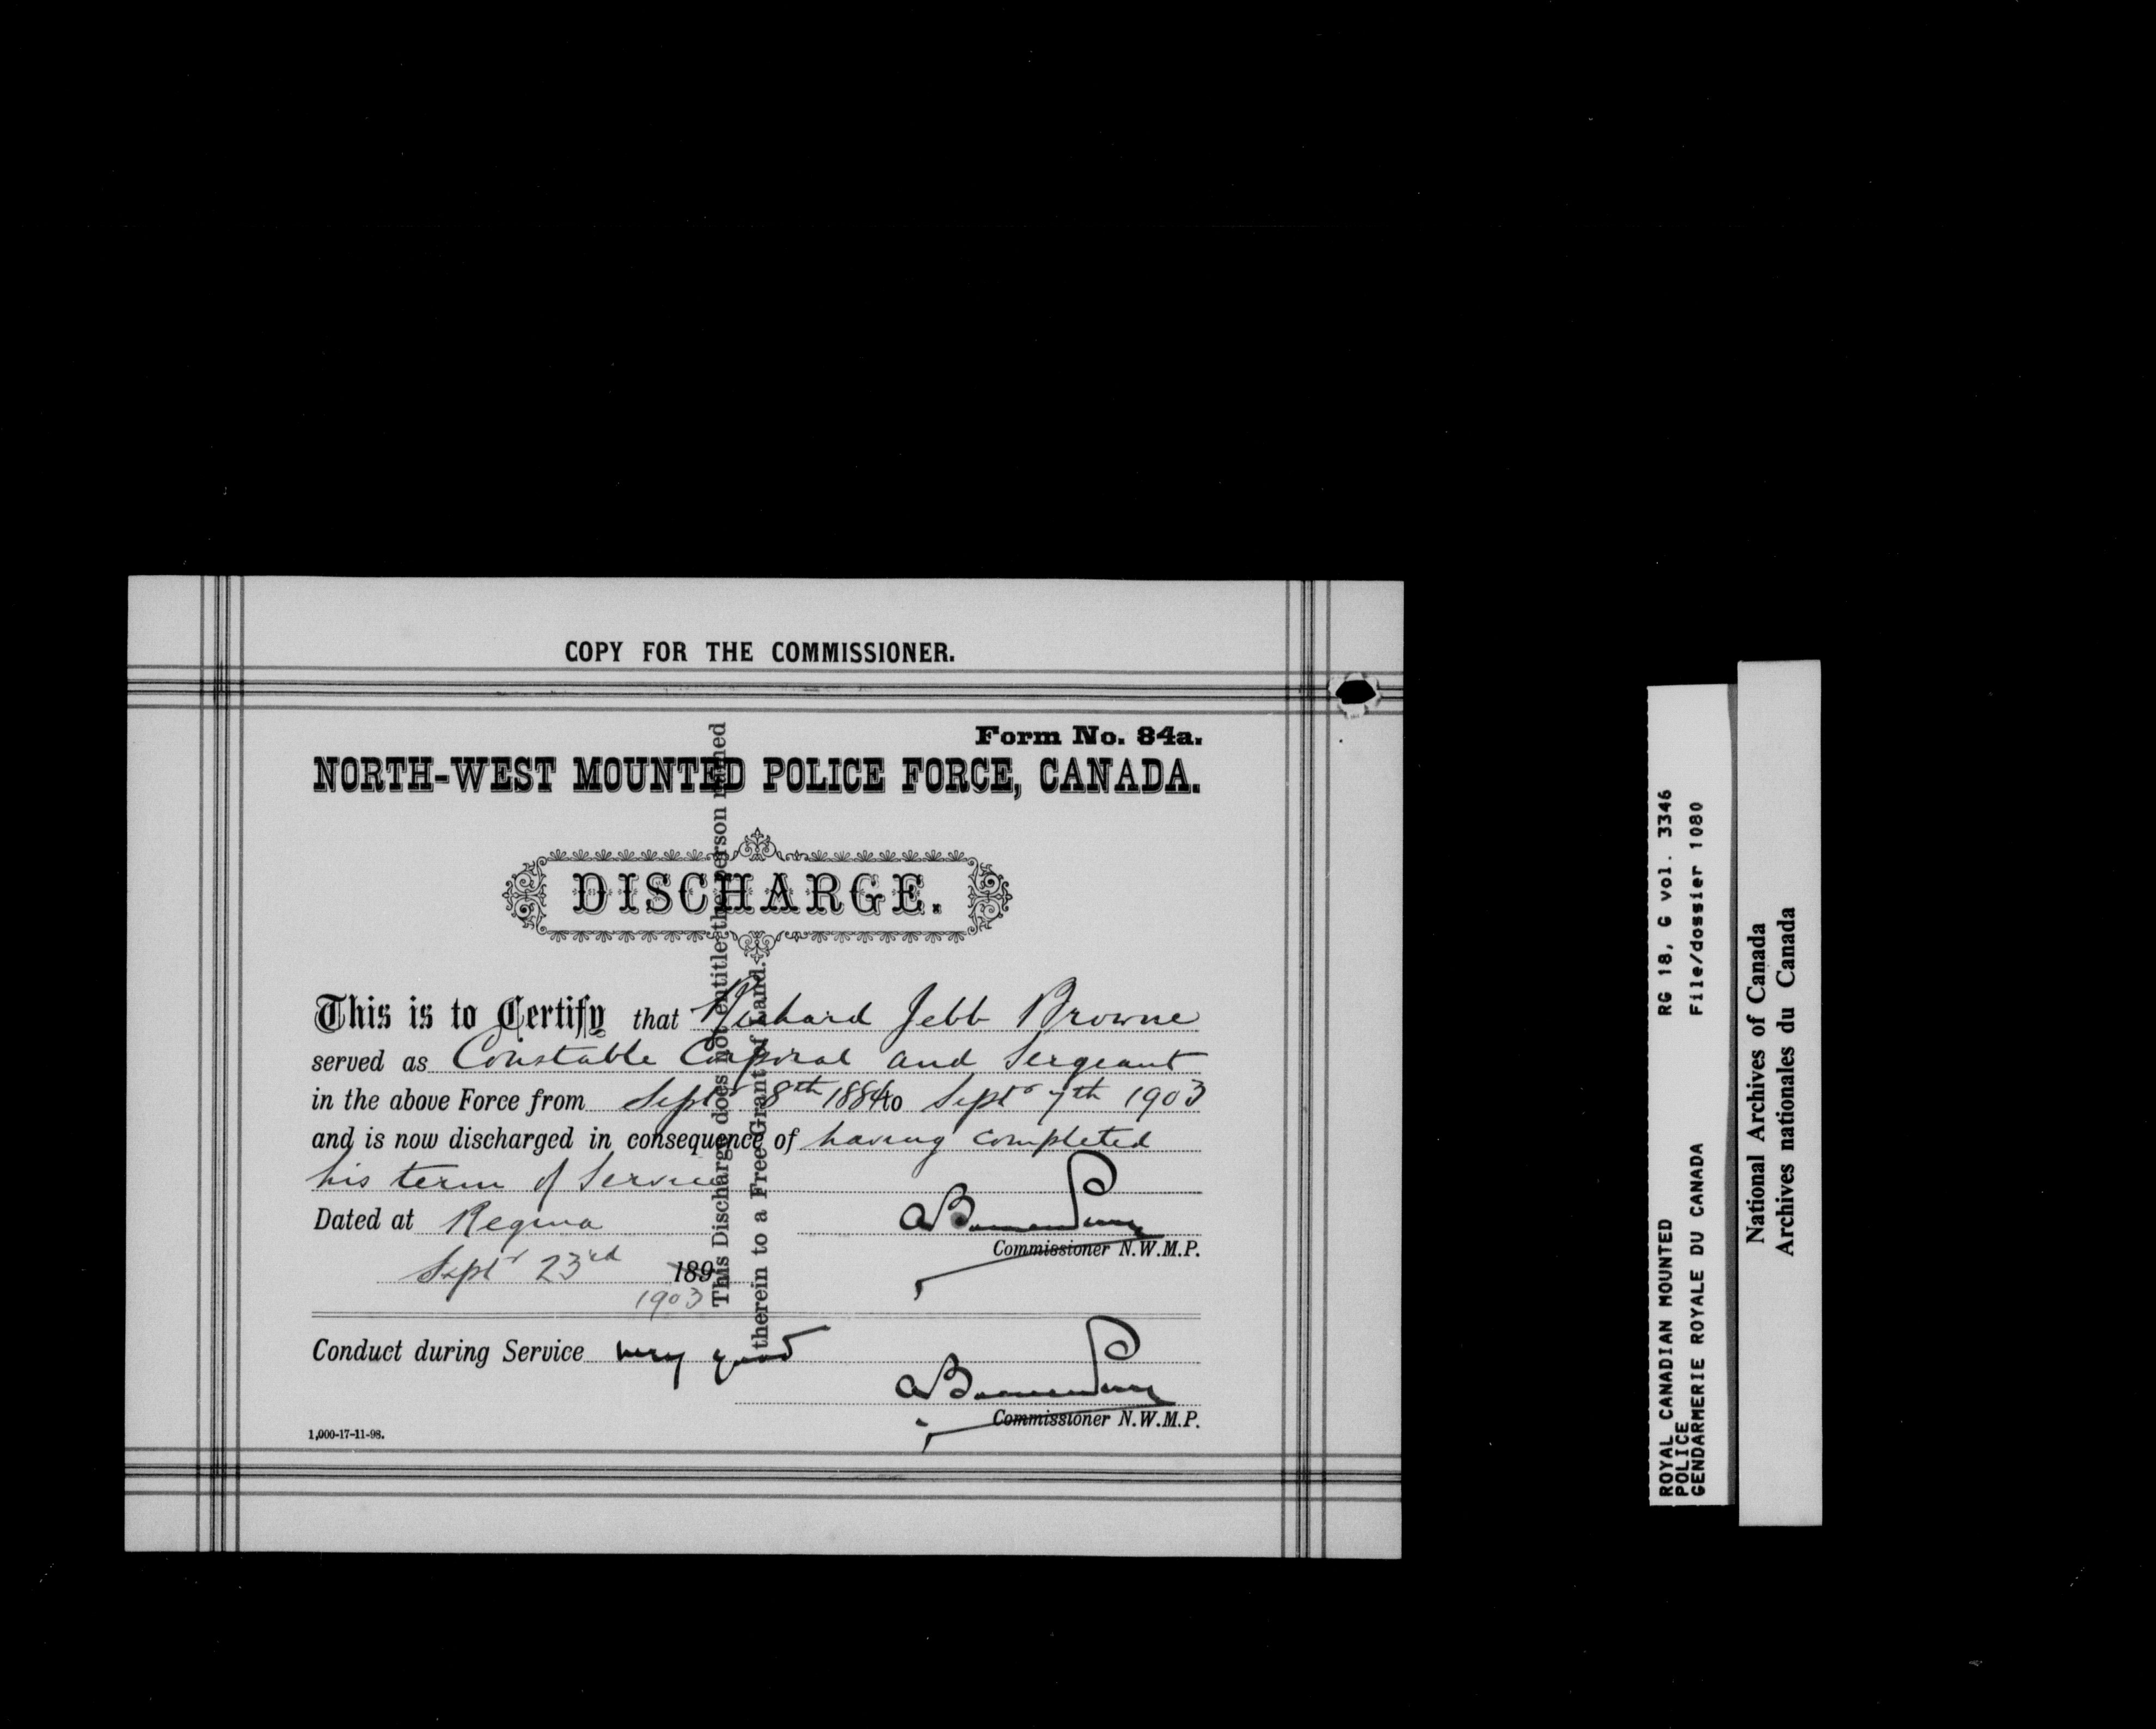 COPY FOR THE COMMISSIONER.
Form No. 84a.
NORTH-WEST MOUNTED POLICE FORCE, CANADA.
DISCHARGE.
This is to Certify that Richard Jebb Browne
served as Constable Corporal and Sergeant
in the above Force from Septr 8th 1884 to Septr 7th 1903
and is now discharged in consequence of having completed
his term of Service
Dated at Regina
Commissioner N.W.M.P.
Septr 23rd 189
1903
Conduct during Service very good
Commissioner N.W.M.P.
1,000-17-11-98.
This Discharge does not entitle the person named
therein to a Free Grant of Land.
ROYAL CANADIAN MOUNTED RG 18, G vol. 3346
POLICE
GENDARMERIE ROYALE DU CANADA File/dossier 1080
National Archives of Canada
Archives nationales du Canada